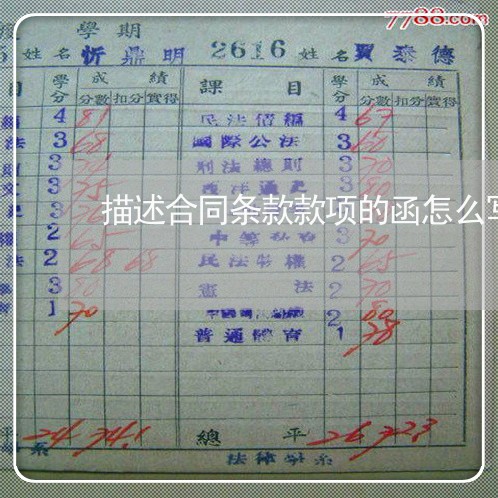 7788.com
學期
姓名 忻鼎明 2616 姓名 賈泰德
目 學分 成績 課目 學分 成績
分數 扣分 實得 分數 扣分 實得
4 81 民法債編 4 67
法 3 68 國際公法 3 60
3 刑法總則 3 70
3 75 西洋通史 3 80
描述合同条款款项的函怎么写
2 65 中等 3 70
法 2 68 68 民法物權 2 65
3 80 憲法 2 70
1 70 2 80
普通體育 1 78
平 24 74.1 總平 26 72.3
系 法律學系